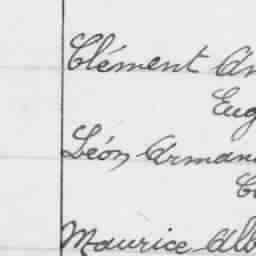 Clément An
Eug
Léon Arman
C
Maurice Alb